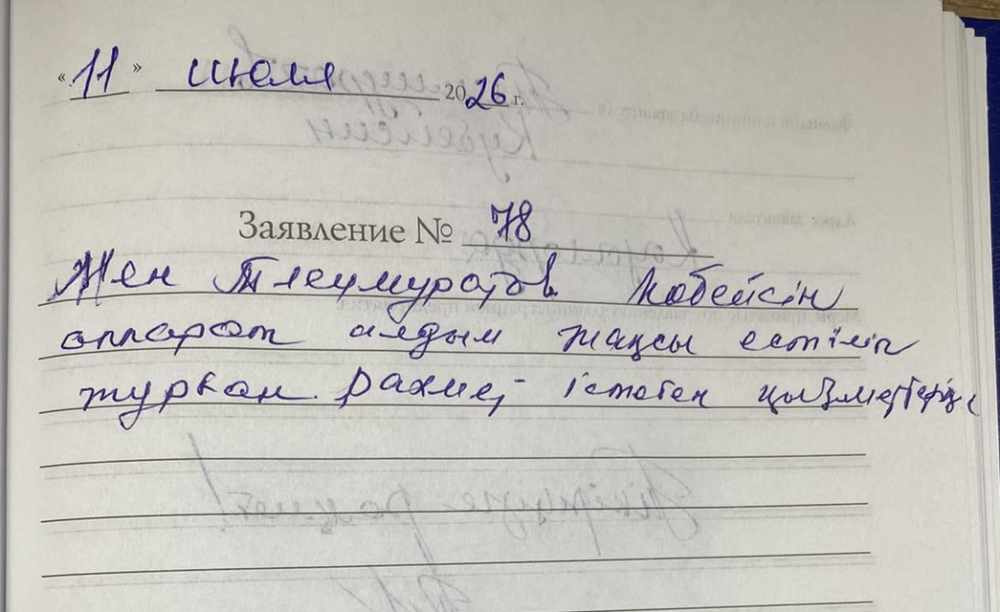 «11» июля 2026 г.
Заявление № 78
Мен Тлеумуратов Кобейсін
аппарат алдым жақсы естіліп
турған. Рахмет істеген қызметтеріңе